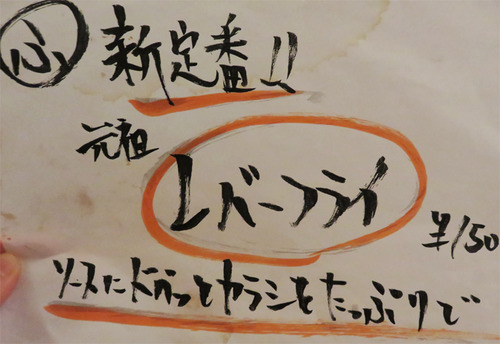 ふ 新定番!!
元祖
レバーフライ
¥150
ソースにドボっとカラシをたっぷりで